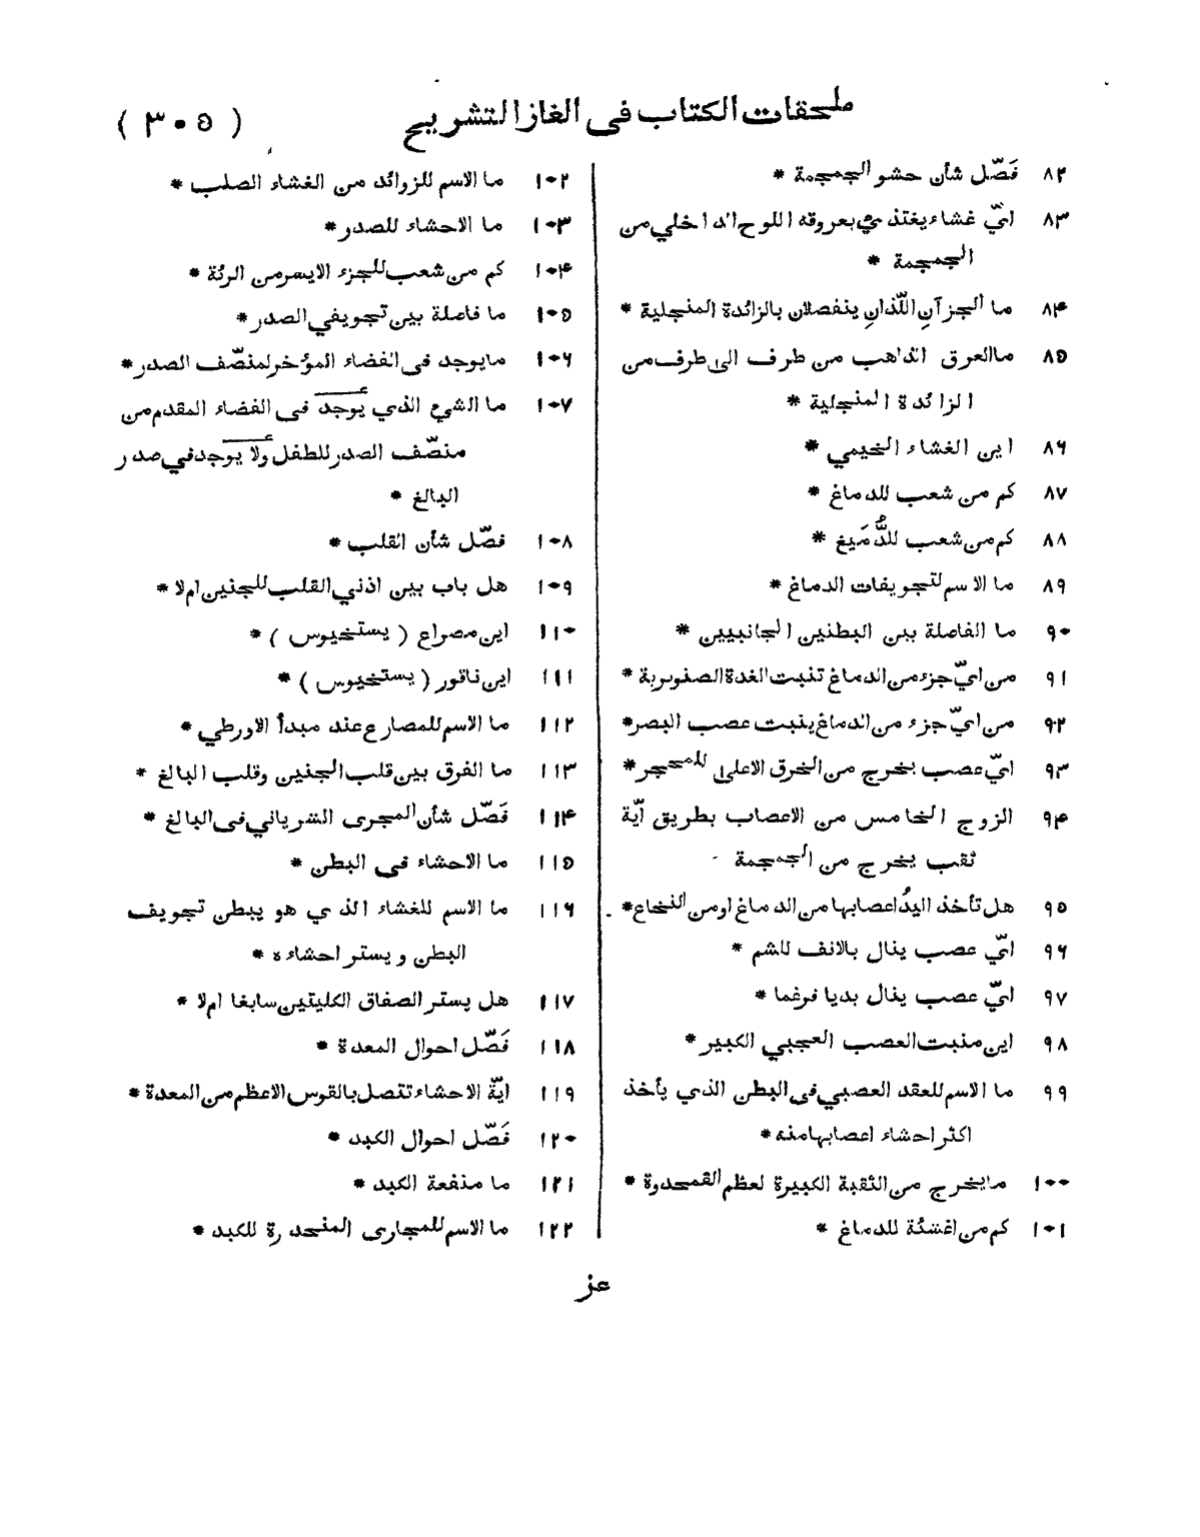 ملحقات الكتاب في الغاز التشريح
( ٣٠٥ )
٨٢ فَصِّل شأن حشو الجمجمة *
٨٣ ايّ غشاء يغتذي بعروقه اللوح الداخلي من
الجمجمة *
٨۴ ما الجزآنِ اللّذانِ ينفصلان بالزائدة المنجلية *
٨٥ ما العرق الذاهب من طرف الى طرف من
الزائدة المنجلية *
٨۶ اين الغشاء الخيمي *
٨٧ كم من شعب للدماغ *
٨٨ كم من شعب للدُّمَيغ *
٨٩ ما الاسم لتجويفات الدماغ *
٩٠ ما الفاصلة بين البطنين الجانبيين *
٩١ من ايّ جزء من الدماغ تنبت الغدة الصنوبرية *
٩٢ من ايّ جزء من الدماغ ينبت عصب البصر *
٩٣ ايّ عصب يخرج من الخرق الاعلى للمحجر *
٩۴ الزوج الخامس من الاعصاب بطريق آيّة
ثقب يخرج من الجمجمة
٩٥ هل تأخذ اليدُ اعصابها من الدماغ او من النخاع *
٩۶ ايّ عصب ينال بالانف للشم *
٩٧ ايّ عصب ينال بديا فرغما *
٩٨ اين منبت العصب العجبي الكبير *
٩٩ ما الاسم للعقد العصبي في البطن الذي يأخذ
اكثر احشاء اعصابها منه *
١٠٠ ما يخرج من الثقبة الكبيرة لعظم القمحدوة *
١٠١ كم من اغشئة للدماغ *
١٠٢ ما الاسم للزوائد من الغشاء الصلب *
١٠٣ ما الاحشاء للصدر *
١٠۴ كم من شعب للجزء الايسر من الرئة *
١٠٥ ما فاصلة بين تجويفي الصدر *
١٠۶ ما يوجد في الفضاء المؤخر لمنصّف الصدر *
١٠٧ ما الشيء الذي يوجد في الفضاء المقدم من
منصّف الصدر للطفل ولا يوجد في صدر
البالغ *
١٠٨ فصّل شأن القلب *
١٠٩ هل باب بين اذني القلب للجنين ام لا *
١١٠ اين مصراع ( يستخيوس ) *
١١١ اين ناقور ( يستخيوس ) *
١١٢ ما الاسم للمصارع عند مبدأ الاورطي *
١١٣ ما الفرق بين قلب الجنين وقلب البالغ *
١١۴ فَصّل شأن المجرى الشرياني في البالغ *
١١٥ ما الاحشاء في البطن *
١١۶ ما الاسم للغشاء الذي هو يبطن تجويف
البطن ويستر احشاءه *
١١٧ هل يستر الصفاق الكليتين سابغا ام لا *
١١٨ فَصّل احوال المعدة *
١١٩ ايّة الاحشاء تتصل بالقوس الاعظم من المعدة *
١٢٠ فَصّل احوال الكبد *
١٢١ ما منفعة الكبد *
١٢٢ ما الاسم للمجارى المنحدرة للكبد *
عز